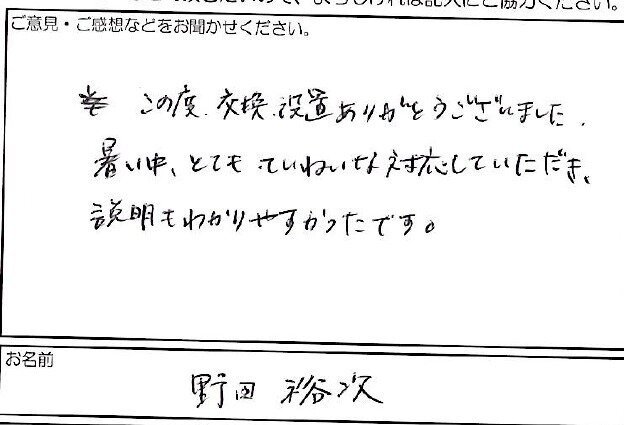 ご意見・ご感想などをお聞かせください。
この度、交換、設置ありがとうございました。
暑い中、とてもていねいな対応していただき、
説明もわかりやすかったです。
お名前
野田 裕次